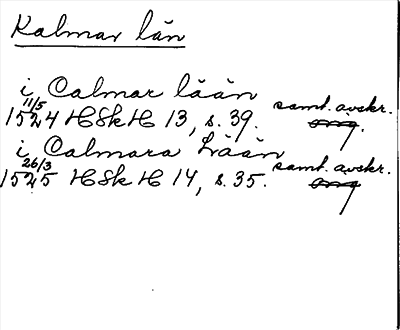 Kalmar län
i Calmar lään
1524 11/5 HSkH 13, s. 39. samt. avskr.
orig.
i Calmara Lään
1525 26/3 HSkH 14, s. 35. samt. avskr.
orig